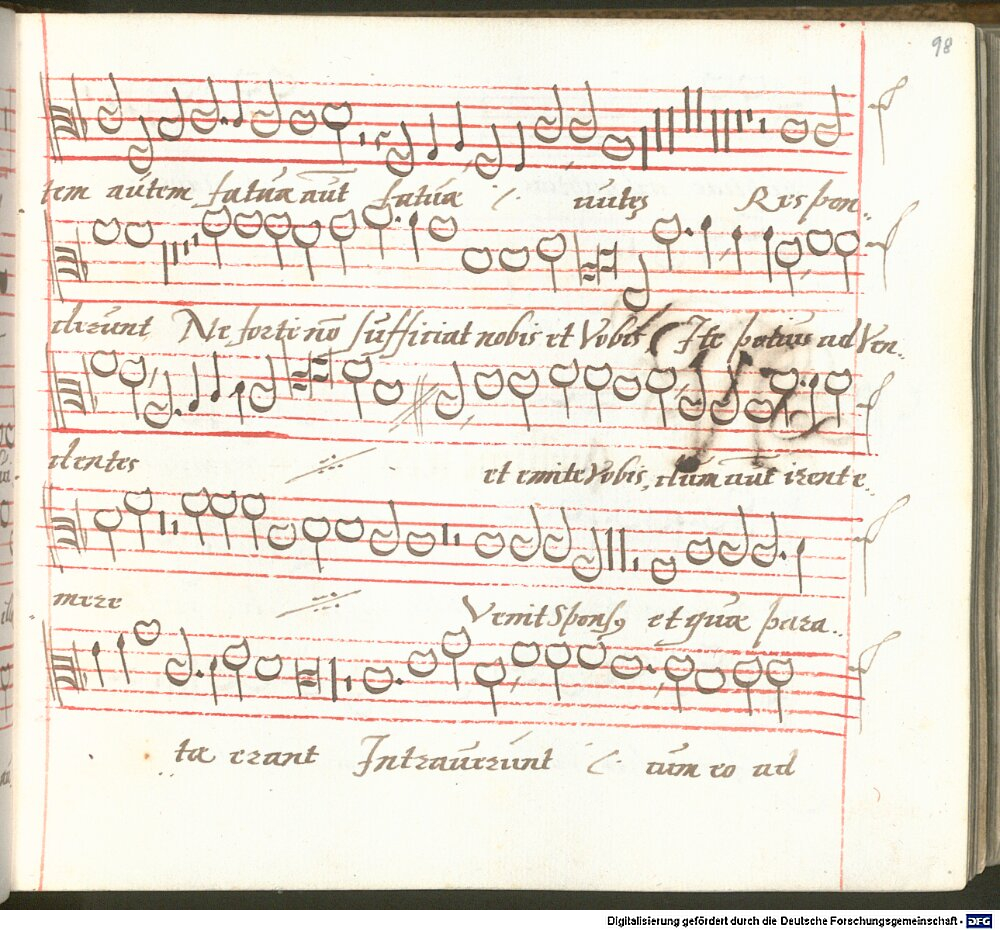 98
tem autem fatuæ aūt fatuæ ·/· uutes Respon..
derunt Ne forte nō sufficiat nobis et Vobis, Ite potius ad Ven..
dentes et emite Vobis, dum aut irent e..
mere Venit Spons9 et quæ para..
ta erant Intrauerunt ·/· cum eo ad
Digitalisierung gefördert durch die Deutsche Forschungsgemeinschaft - DFG